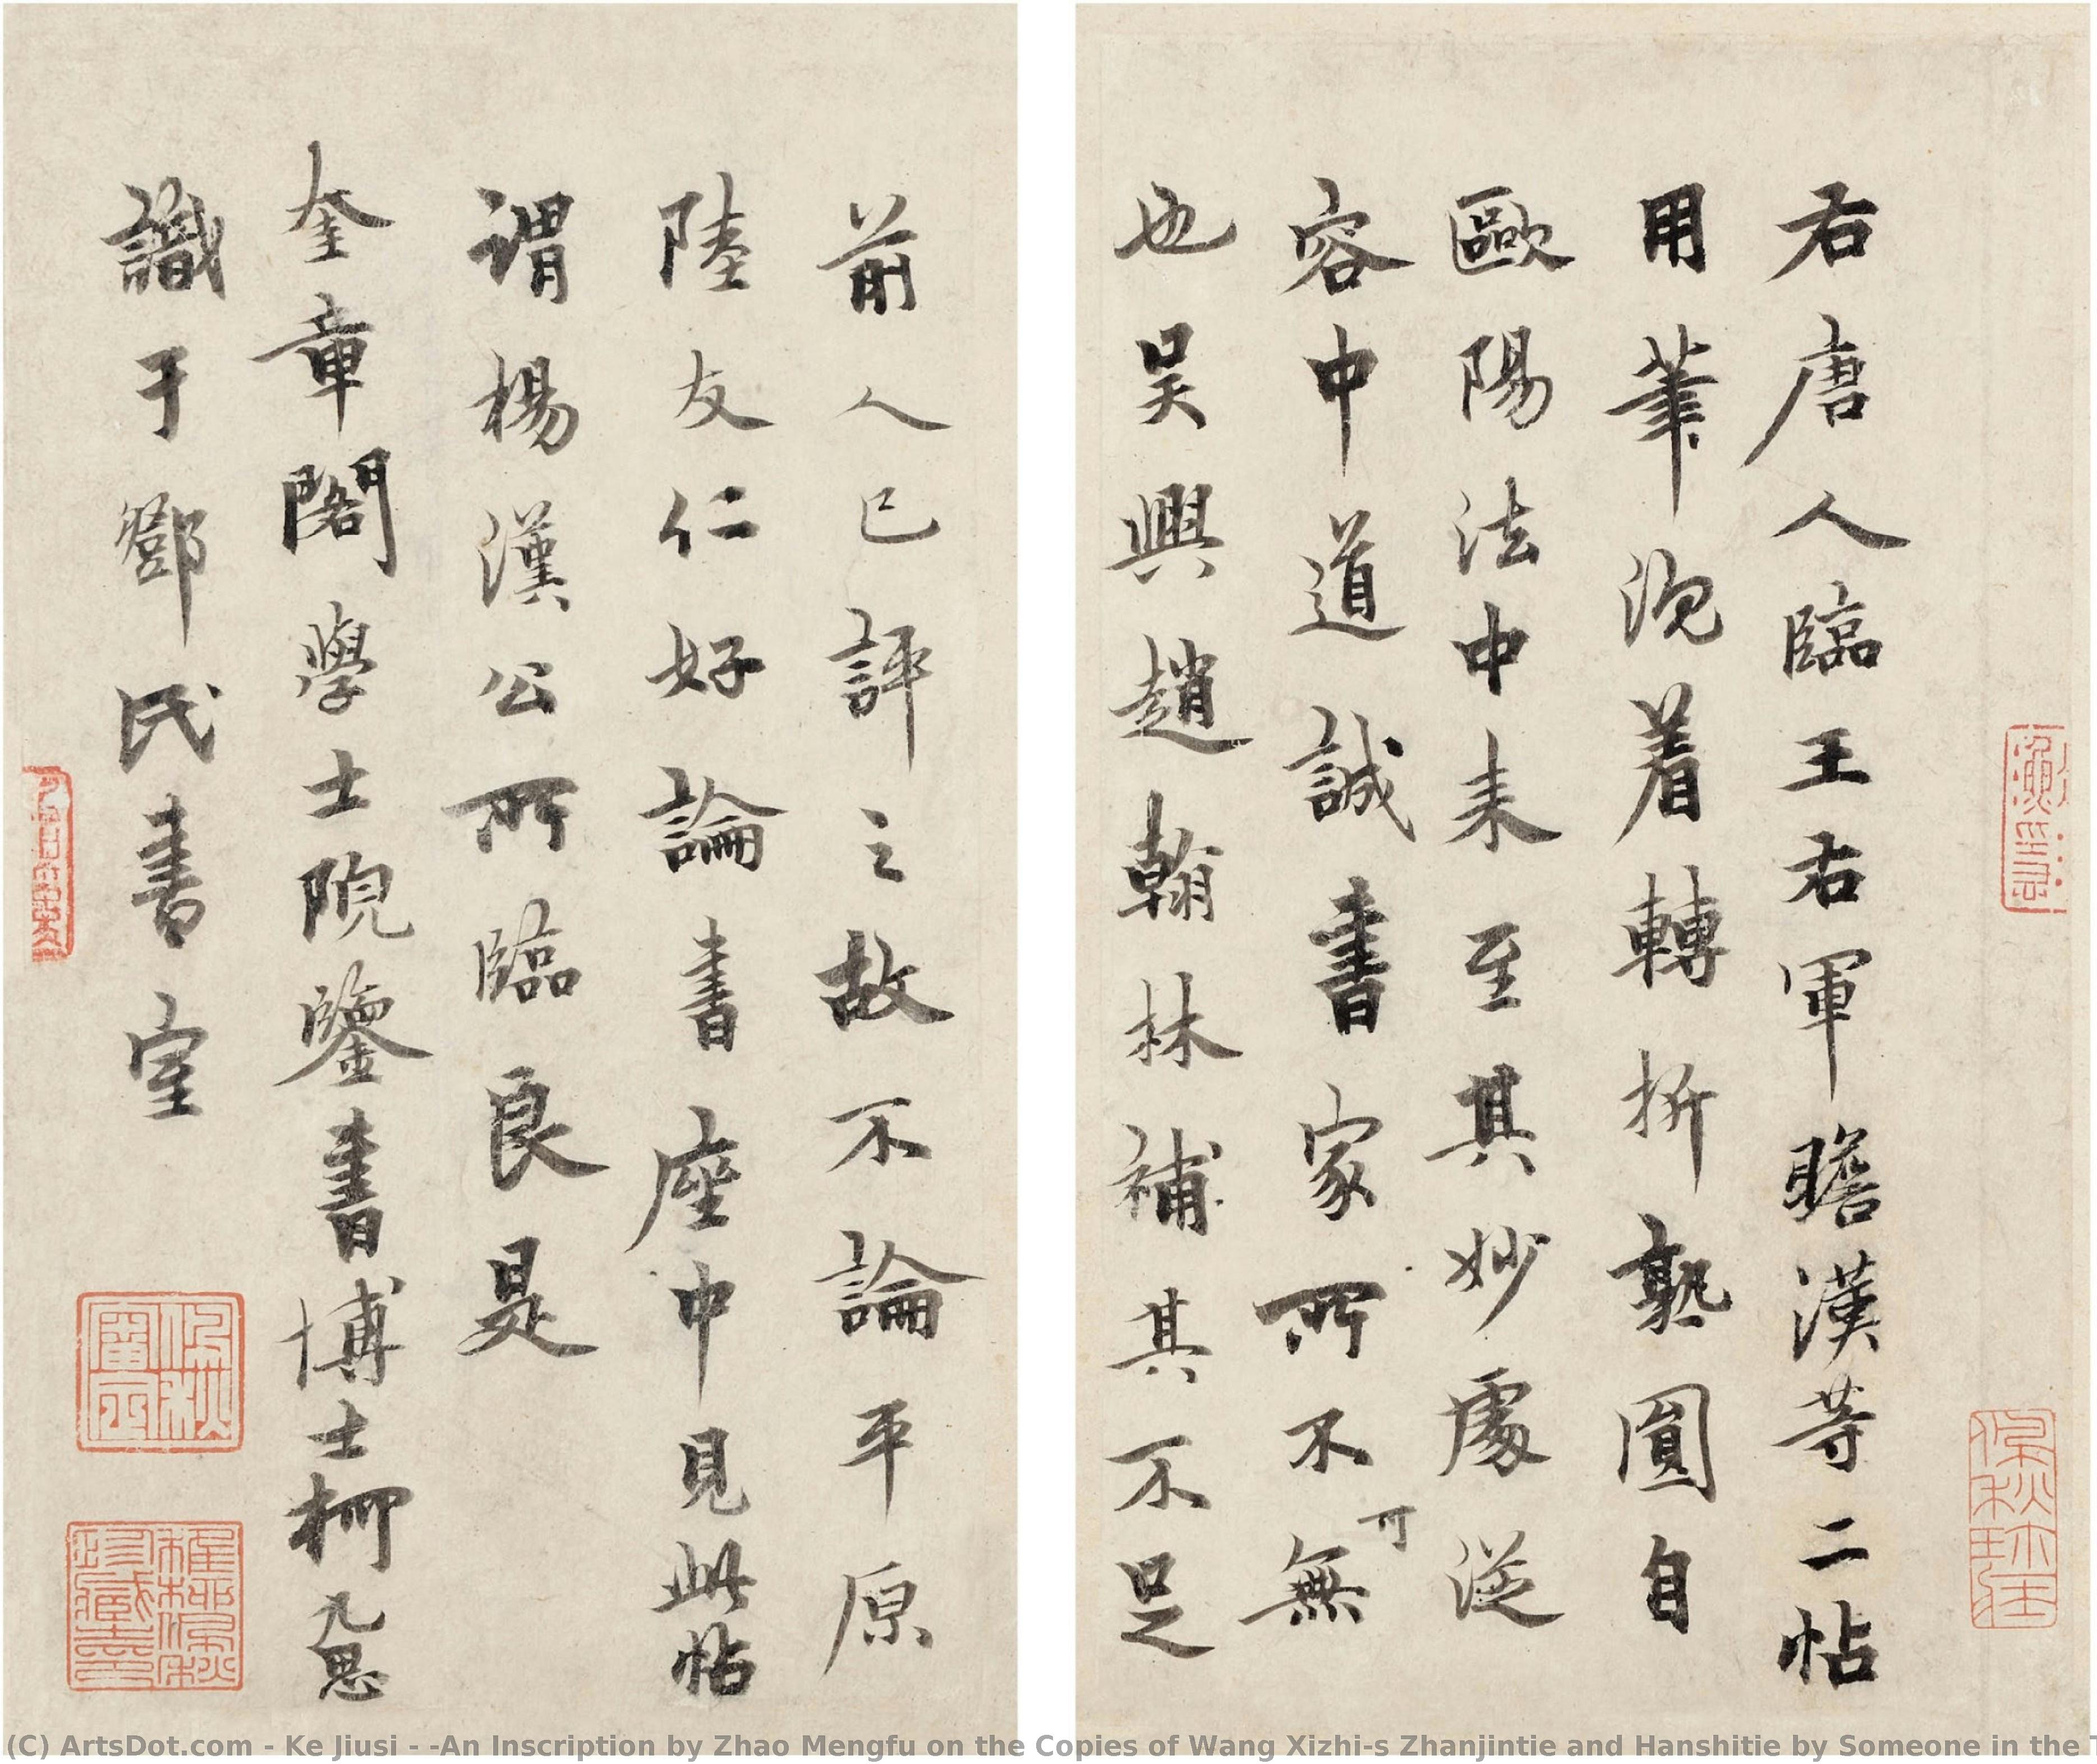 右唐人臨王右軍瞻漢等二帖
用筆沉着轉折熟圓自
歐陽法中来至其妙處従
容中道誠書家所不可無
也吴興趙翰林補其不足
前人已評之故不論平原
陸友仁好論書座中見此帖
謂楊漢公所臨良是
奎章閣學士院鑒書博士柯九思
識于鄧氏書室
(C) ArtsDot.com - Ke Jiusi - -An Inscription by Zhao Mengfu on the Copies of Wang Xizhi-s Zhanjintie and Hanshitie by Someone in the